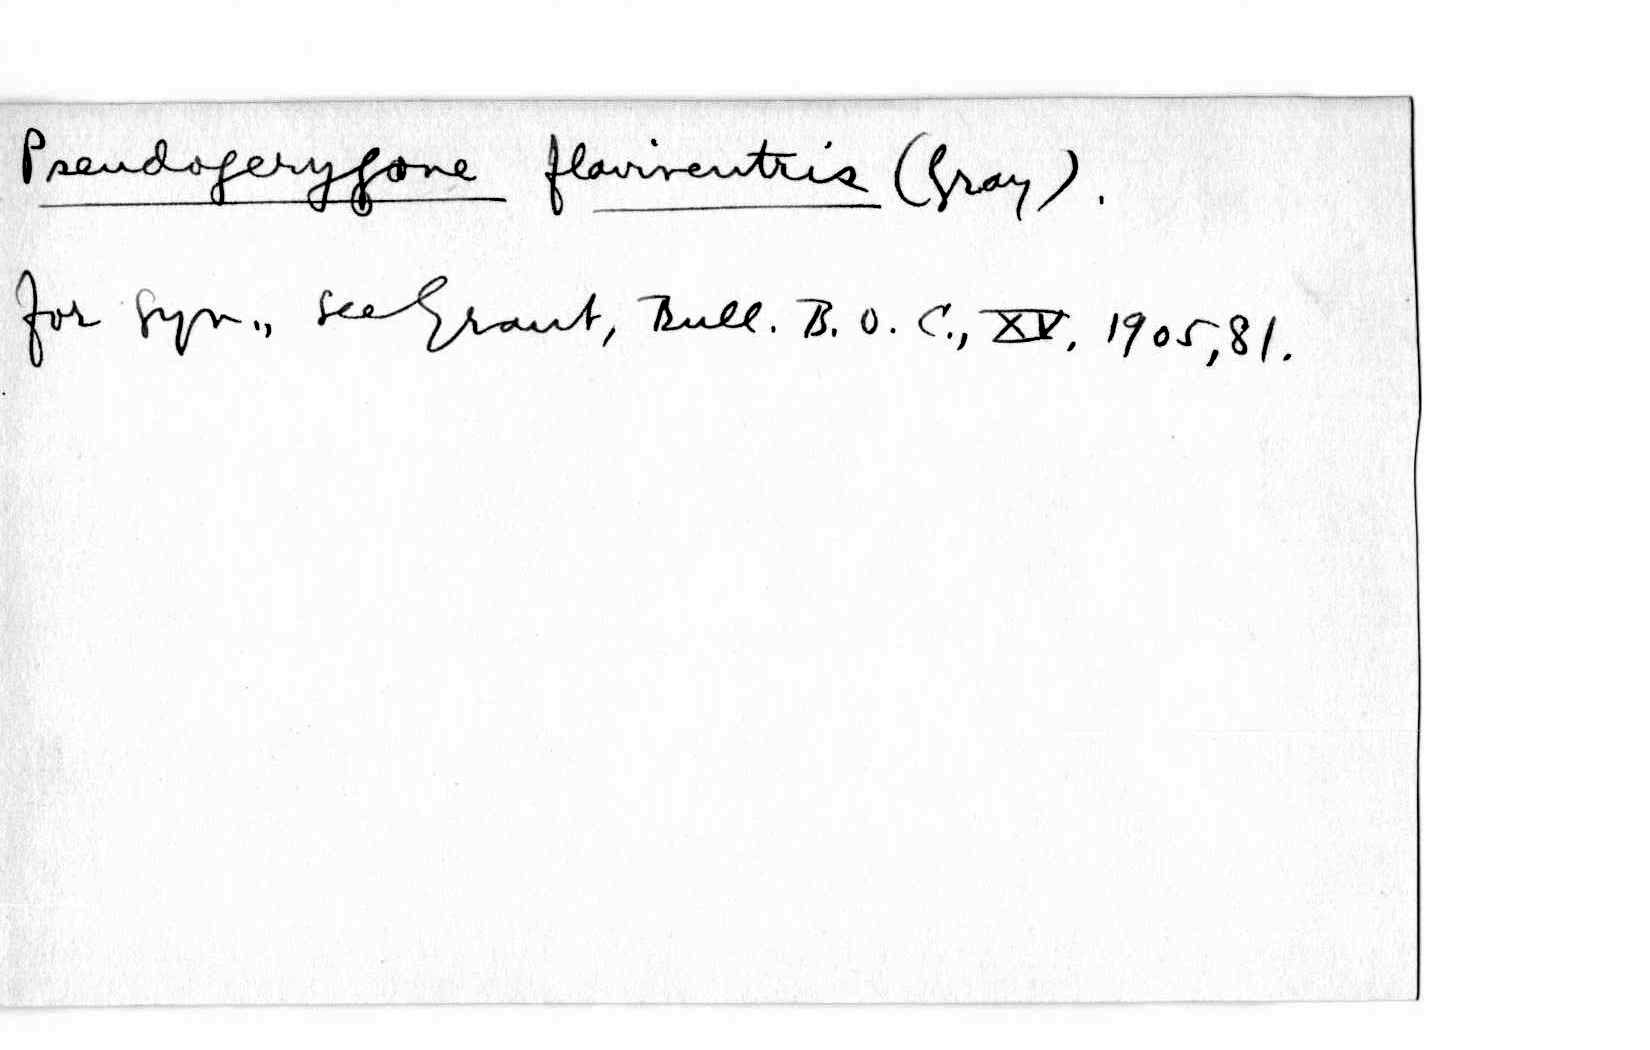 Pseudogerygone flaviventris (Gray).
for syn., see Grant, Bull. B. O. C., XV, 1905, 81.